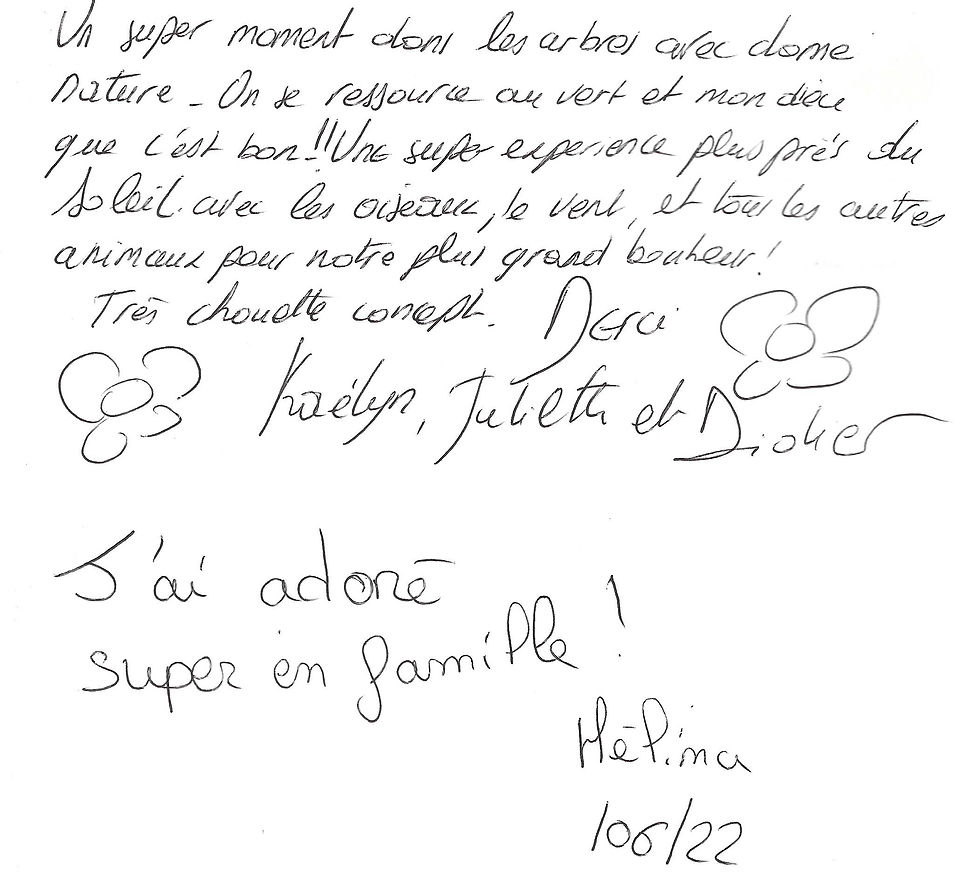 Un super moment dans les arbres avec dame
nature - On se ressource au vert et mon dieu
que c'est bon!! Une super experience plus près du
soleil. avec les oiseaux, le vent, et tous les autres
animaux pour notre plus grand bonheur!
Très chouette concept. Merci
Kaélyn, Juliette et Didier
J'ai adoré
super en famille !
Hélina
/06/22